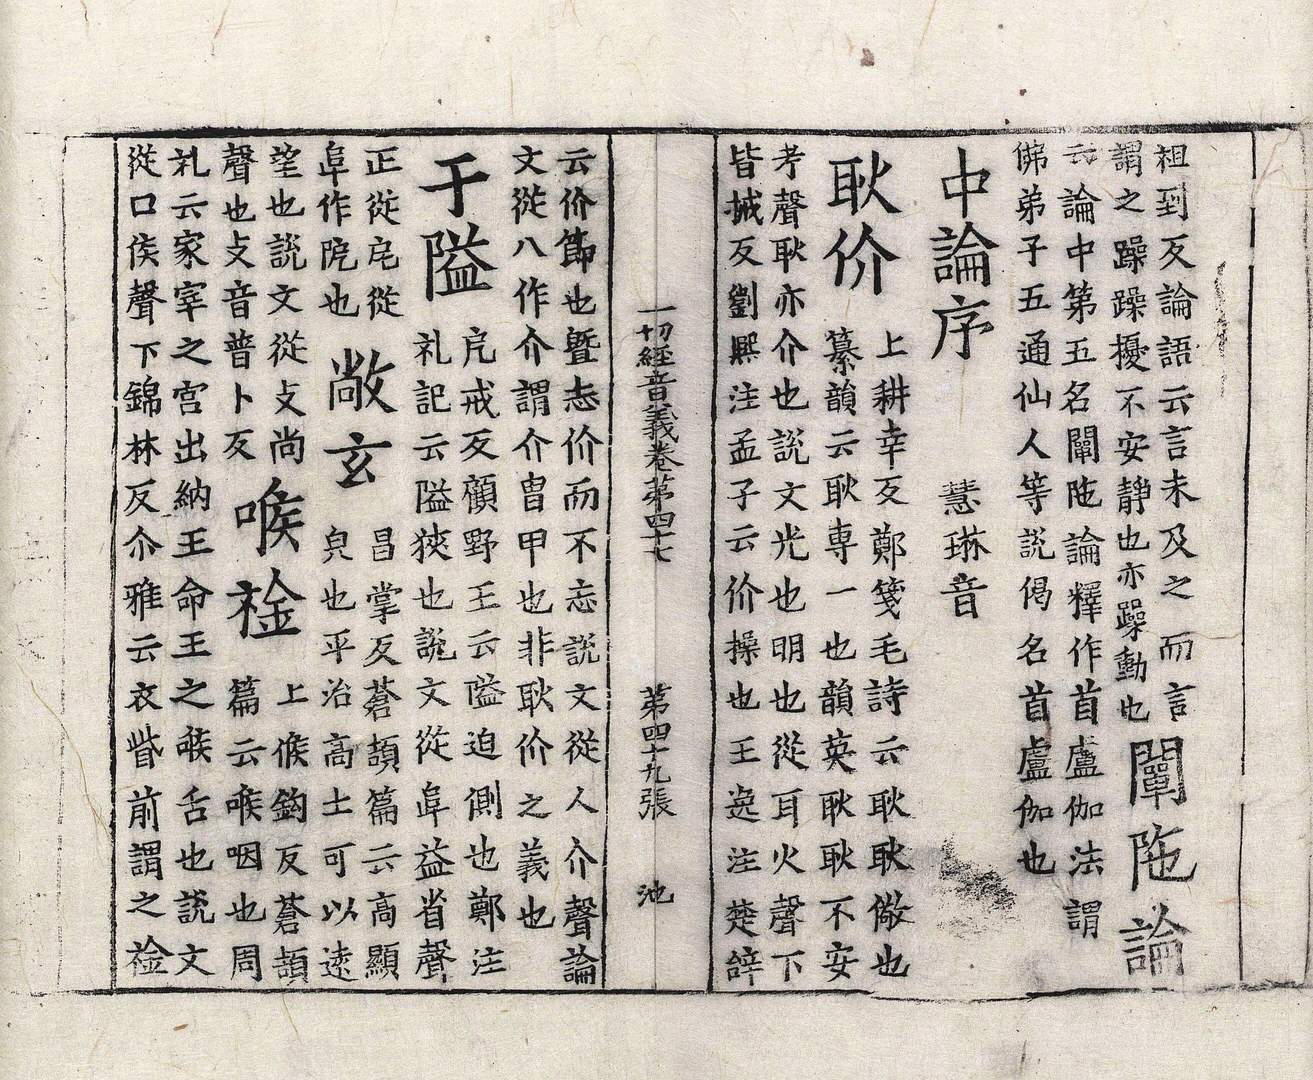 祖到反論語云言未及之而言
謂之躁躁擾不安靜也亦躁動也
闡陁論
云論中第五名闡陁論釋作首盧伽法謂
佛弟子五通仙人等説偈名首盧伽也
中論序 慧琳音
耿价
上耕幸反鄭箋毛詩云耿耿儆也
纂韻云耿專一也韻英耿耿不安
考聲耿亦介也説文光也明也從耳火聲下
皆械反劉熙注孟子云价操也王逸注楚辝
一切經音義卷第四十七 第四十九張 池
云价節也曁忎价而不忘説文從人介聲論
文從八作介謂介冑甲也非耿价之義也
于隘
戹戒反顧野王云隘迫側也鄭注
礼記云隘狹也説文從𨸏益省聲
正從戹從
𨸏作阨也
敞玄
昌掌反蒼頡篇云高顯
皃也平治高土可以遠
望也説文從攴尚
聲也攴音普卜反
喉襟
上候鈎反蒼頡
篇云喉咽也周
礼云冢宰之宫出納王命王之喉舌也説文
從口侯聲下錦林反尒雅云衣眥前謂之襟